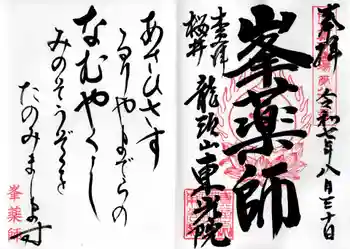 奉拝 令和七年八月三十日
峯薬師
奉拝
桜井
龍頭山
あさひさす
るりやまでらの
なむやくし
みのそうぞくを
たのみまします
峯薬師